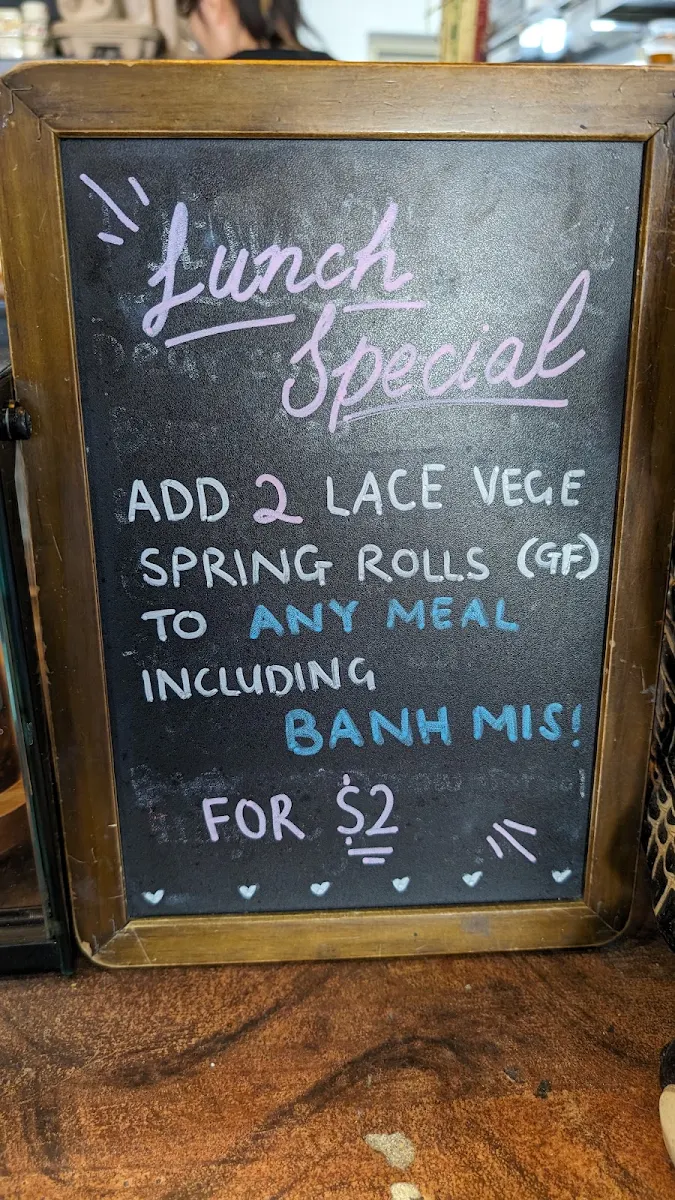 Lunch
Special
ADD 2 LACE VEGE
SPRING ROLLS (GF)
TO ANY MEAL
INCLUDING
BANH MIS!
FOR $2